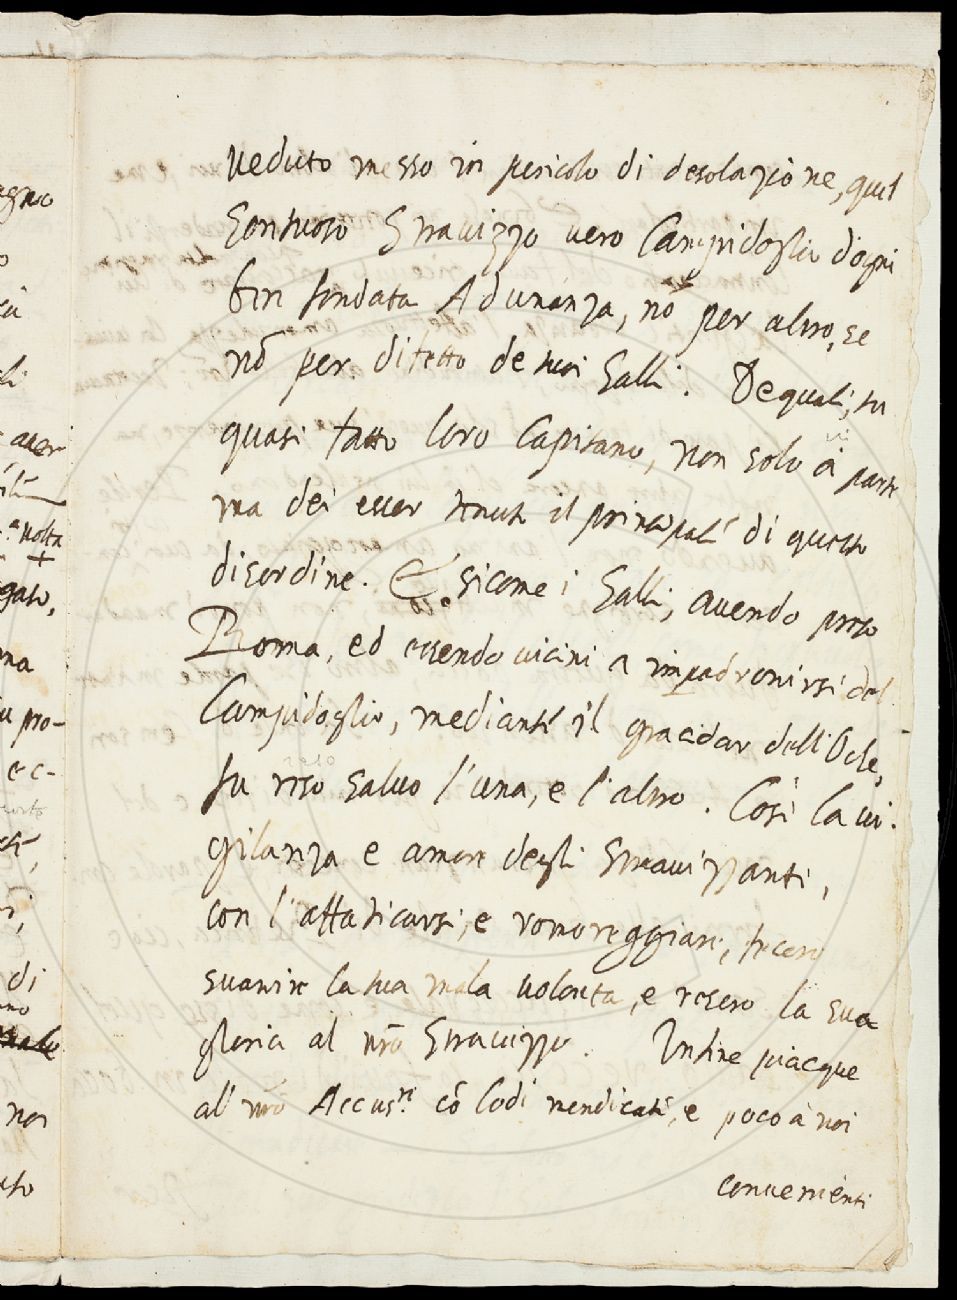 veduto messo in pericolo di desolazione, quel
sontuoso Stravizzo vero Campidoglio d'ogni
ben fondata Adunanza, nõ per altro, se
nõ per difetto de suoi Galli. De quali, fu
quasi fatto loro Capitano, non solo à parte
ma dei esser tenuto il principale di questo
disordine. E sicome i Galli, avendo preso
Roma, ed essendo vicini a impadronirsi del
Campidoglio, mediante il gracidar dell'Oche,
fu reso salvo l'una, e l'altro. Così la vi-
gilanza e amore degli Stravizzanti,
con l'affaticarsi, e romoreggiare, fecero
svanire la sua mala volontà, e resero la sua
gloria al nr̃o Stravizzo. Infine piacque
al nr̃o Accus.re cõ lodi mendicate, e poco à noi
convenienti
egno
aver
volta
gato,
na
pro-
ec-
di
non